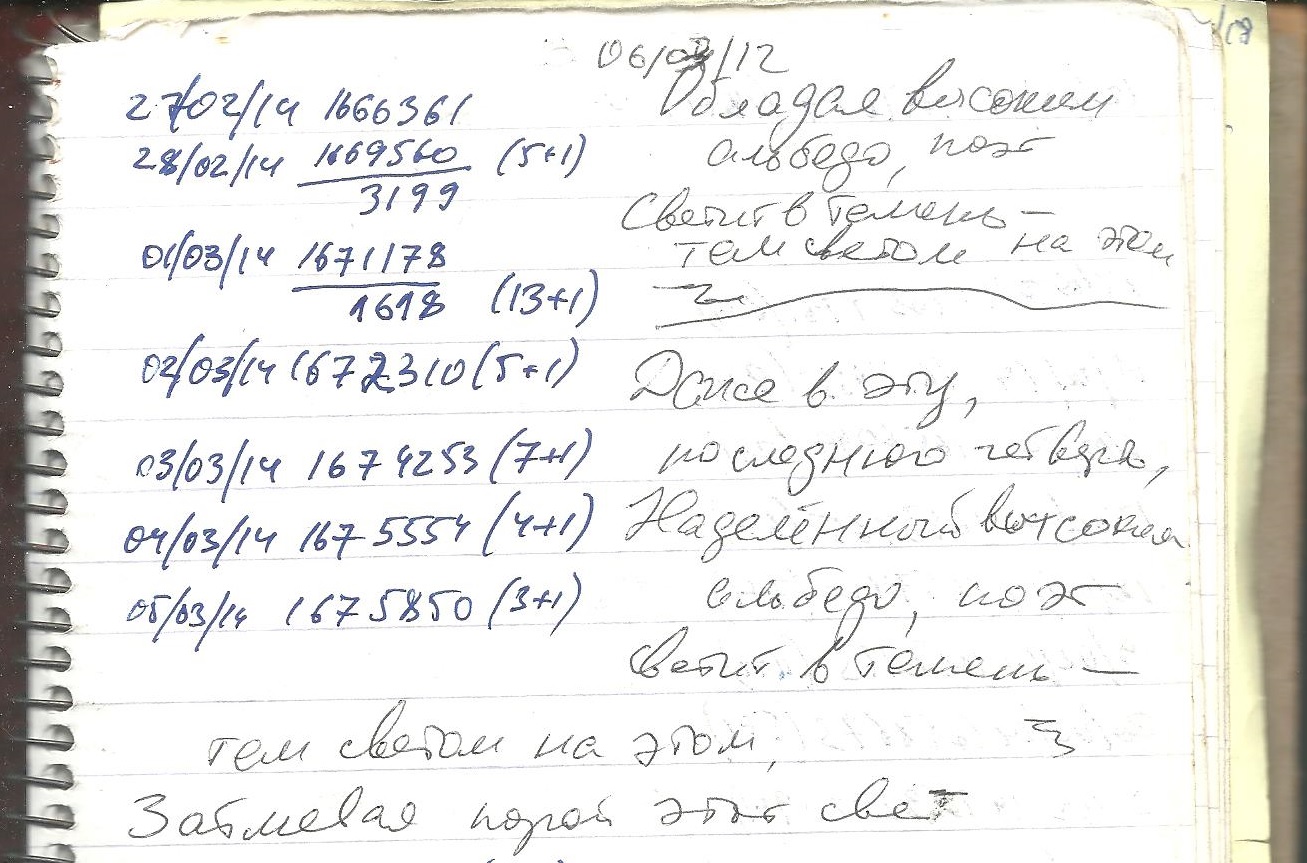 06/03/12
27/02/14 1666361
28/02/14 1669560 (5+1)
3199
01/03/14 1671178
1618 (13+1)
02/03/14 1672310 (5+1)
03/03/14 1674253 (7+1)
04/03/14 1675554 (4+1)
05/03/14 1675850 (3+1)
Обладая высоким
альбедо, поэт
Светит в темень –
тем светом на этом
Даже в эту,
последнюю четверть,
Наделённый высоким
альбедо, поэт
светит в темень —
тем светом на этом,
Затмевая порой этот свет